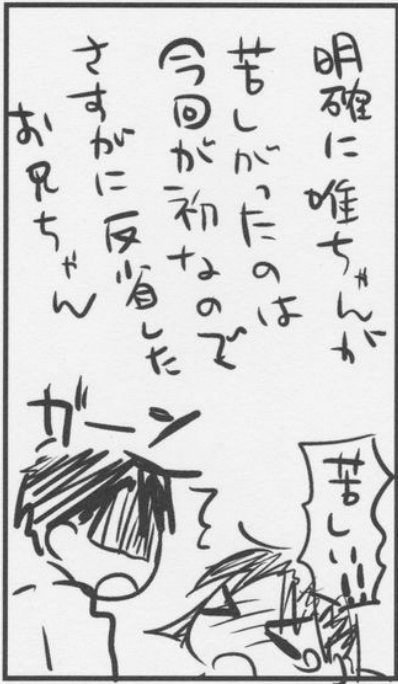 明確に唯ちゃんが
苦しがったのは
今回が初なので
さすがに反省した
お兄ちゃん
苦しい!!
ガーン